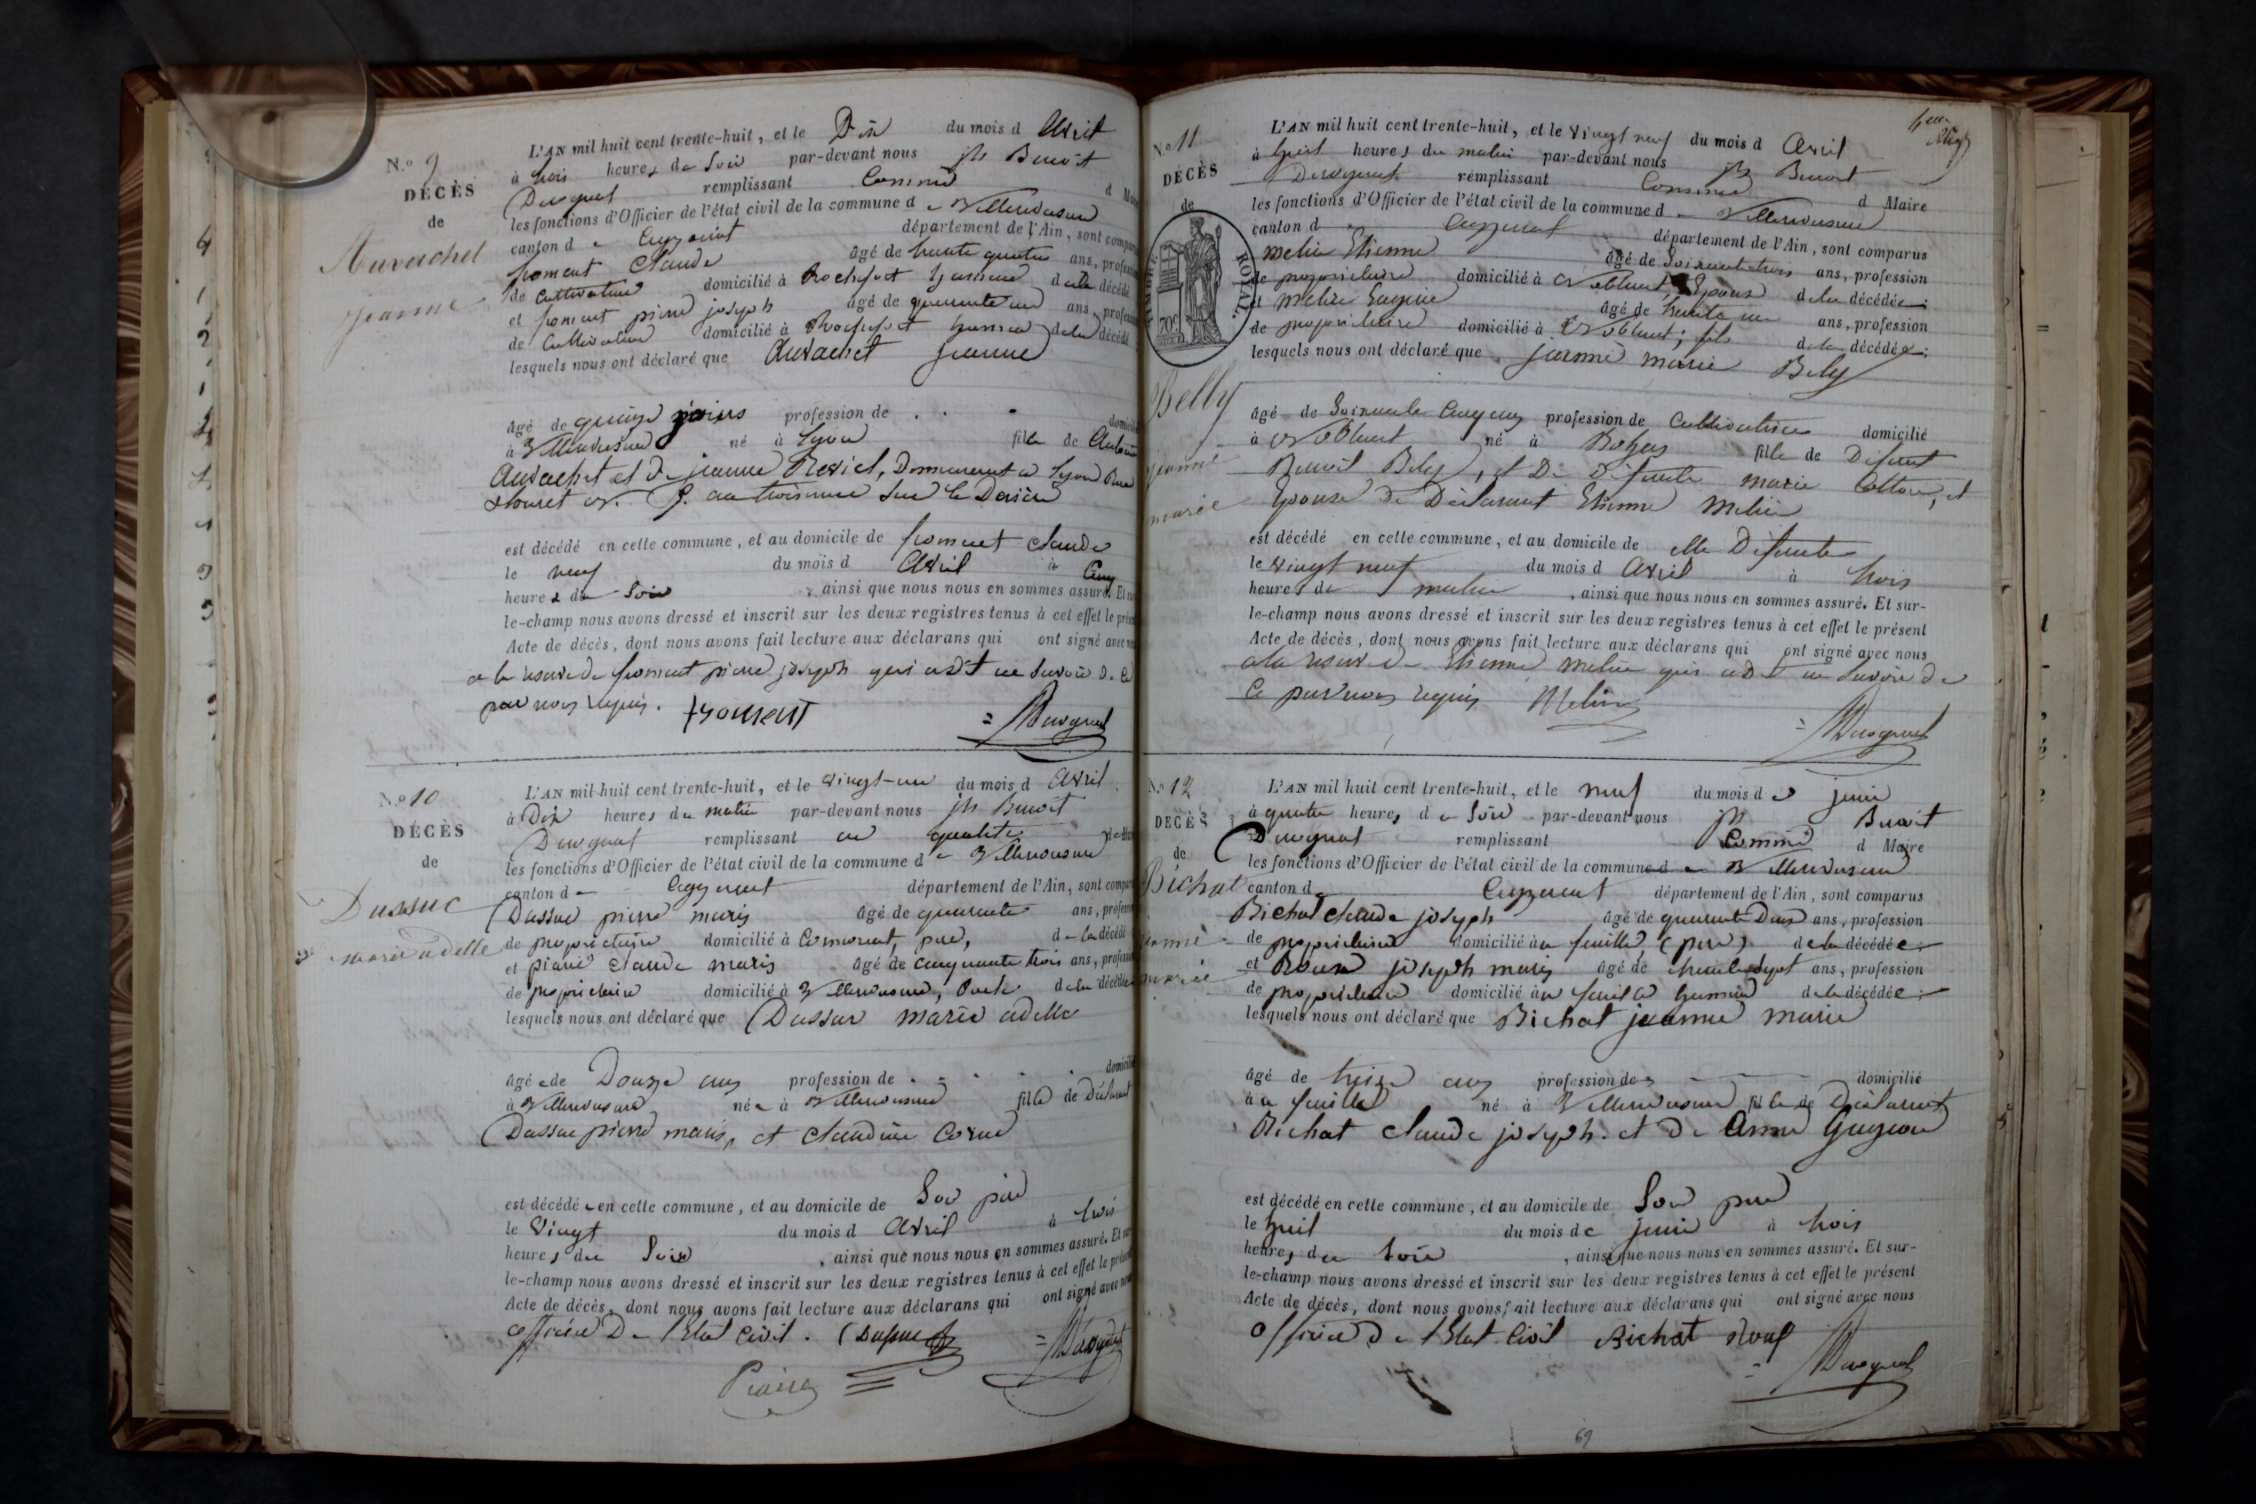 N.º 9
DÉCÈS
de
Auvachet
jeanne
L'AN mil huit cent trente-huit, et le Dix du mois d Avril
à trois heures du Soir par-devant nous jh Benoit
Duvignat remplissant Comme d Maire
les fonctions d'Officier de l'état civil de la commune de Villereversure
canton de Ceyzeriat département de l'Ain, sont comparus
froment Claude âgé de trente quatre ans, profession
de Cultivateur domicilié à Rochefort de la décédé
et froment pierre joseph âgé de quarante un ans, profession
de Cultivateur domicilié à Rochefort de la décédé
lesquels nous ont déclaré que Auvachet jeanne
âgé de quinze jours profession de domicilié
à Villereversure né à Lyon fille de Antoine
Auvachet et de jeanne Demeurant a Lyon Rue
N. 9. au troisieme Sur le Derière
est décédé en cette commune, et au domicile de froment claude
le neuf du mois d Avril à Cinq
heures du Soir, ainsi que nous nous en sommes assuré. Et sur-
le-champ nous avons dressé et inscrit sur les deux registres tenus à cet effet le présent
Acte de décès, dont nous avons fait lecture aux déclarans qui ont signé avec nous
a la réserve de froment pierre joseph qui a dit ne Savoir de Ce
par nous requis. froment Duvignat
N.º 10
DÉCÈS
de
Dassuc
marie adelle
L'AN mil huit cent trente-huit, et le vingt-un du mois d Avril
à Dix heures du matin par-devant nous jh Benoit
Duvignat remplissant en qualité de Maire
les fonctions d'Officier de l'état civil de la commune de Villereversure
canton de Ceyzeriat département de l'Ain, sont comparus
Dassuc pierre marie âgé de quarante ans, profession
de propriétaire domicilié à Cormorant, père, de la décédé
et claude marie âgé de cinquante trois ans, profession
de propriétaire domicilié à Villereversure, oncle de la décédée
lesquels nous ont déclaré que Dassuc marie adelle
âgée de Douze ans profession de domicilié
à Villereversure née à Villereversure fille de Déclarant
Dassuc pierre marie, et claudine
est décédée en cette commune, et au domicile de Son père
le Vingt du mois d Avril à trois
heures du Soir, ainsi que nous nous en sommes assuré. Et sur-
le-champ nous avons dressé et inscrit sur les deux registres tenus à cet effet le présent
Acte de décès, dont nous avons fait lecture aux déclarans qui ont signé avec nous
officier De l'Etat Civil. Dassuc Duvignat
N.º 11
DÉCÈS
de
TIMBRE ROYAL.
70c
Belly
jeanne
marie
L'AN mil huit cent trente-huit, et le vingt neuf du mois d Avril
à huit heures du matin par-devant nous jh Benoit
Duvignat remplissant Comme d Maire
les fonctions d'Officier de l'état civil de la commune de Villereversure
canton d Ceyzeriat département de l'Ain, sont comparus
Melin Etienne âgé de Soixante trois ans, profession
de propriétaire domicilié à Noblens, Epoux de la décédée;
et Melin âgé de trente un ans, profession
de propriétaire domicilié à Noblens; fils de la décédée;
lesquels nous ont déclaré que jeanne marie Bely
âgé de Soixante Cinq ans profession de Cultivatrice domicilié
à Noblens né à Bohas fille de Défunt
Benoit Bely, et De Défunte marie Cotton, et
Epouse de Déclarant Etienne Melin
est décédé en cette commune, et au domicile de elle Défunte
le vingt neuf du mois d Avril à trois
heures du matin, ainsi que nous nous en sommes assuré. Et sur-
le-champ nous avons dressé et inscrit sur les deux registres tenus à cet effet le présent
Acte de décès, dont nous avons fait lecture aux déclarans qui ont signé avec nous
a la réserve de Etienne melin qui a dit ne Savoir de
Ce par nous requis Melin Duvignat
N.º 12
DÉCÈS
de
Bichat
jeanne
marie
L'AN mil huit cent trente-huit, et le neuf du mois de juin
à quatre heures du Soir par-devant nous jh Benoit
Duvignat remplissant Comme d Maire
les fonctions d'Officier de l'état civil de la commune de Villereversure
canton de Ceyzeriat département de l'Ain, sont comparus
Bichat claude joseph âgé de quarante Deux ans, profession
de propriétaire domicilié à la feuille, (père) de la décédée;
et Roux joseph marie âgé de trente sept ans, profession
de propriétaire domicilié à la feuille de la décédée;
lesquels nous ont déclaré que Bichat jeanne marie
âgé de treize ans profession de domicilié
à la feuille né à Villereversure fille de Déclarant
Bichat claude joseph. et De Anne Guyon
est décédé en cette commune, et au domicile de Son père
le huit du mois de juin à trois
heures du Soir, ainsi que nous nous en sommes assuré. Et sur-
le-champ nous avons dressé et inscrit sur les deux registres tenus à cet effet le présent
Acte de décès, dont nous avons fait lecture aux déclarans qui ont signé avec nous
officier De l'Etat Civil Bichat Roux
Duvignat
69